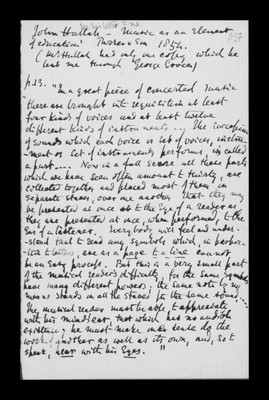 John Hullah – Music as an Element
of education Sun 1854.
(Mr Hullah had only one copy, which he
lent me through George Grove)
p.13. "In a great piece of concerted music
there are brought into requisition at least
four kinds of voices and at least twelve
different kinds of instruments ... The succession
of sounds which each voice or set of voices, instru-
-ment or set of instruments performs, is called
a part.... Now in a full score all these parts
which we have seen often amount to thirty, are
collected together and placed most of them in
separate staves, over one another, that they may
be presented at once to the Eye of a reader as
they are presented at once, when performed, to the
Ear of a listener. Everybody will feel and under-
-stand that to read any symbols which, in propor-
-tion to letters, are as a page to a line cannot
be an easy process. But this is a very small part
of the musical reader's difficulty, for the same symbols
have many different powers; the same note by no
means stands in all the staves for the same sound...
The musical reader must be able to appreciate
with his mind's ear, that which has no audible
existence; he must make one sense do the
work of another as well as its own, and, so to
speak, hear with his Eyes."